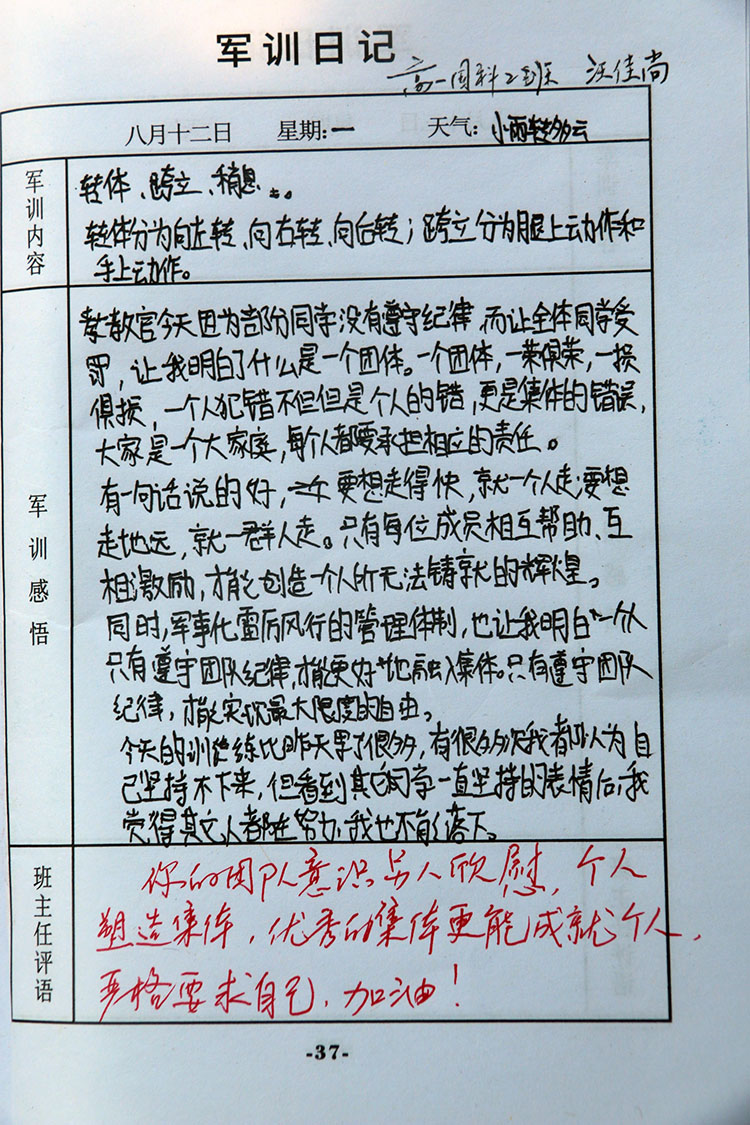 军训日记
高一国科2班 汪佳尚
八月十二日 星期:一 天气:小雨转多云
军训内容
转体、跨立、稍息。
转体分为向左转、向右转、向后转；跨立分为腿上动作和
手上动作。
军训感悟
教官今天因为部份同学没有遵守纪律,而让全体同学受
罚，让我明白了什么是一个团体。一个团体，一荣俱荣，一损
俱损，一个人犯错不但但是个人的错，更是集体的错误，
大家是一个大家庭，每个人都要承担相应的责任。
有一句话说的好，要想走得快，就一个人走；要想
走地远，就一群人走。只有每位成员相互帮助、互
相激励，才能创造一个人所无法铸就的辉煌。
同时，军事化雷厉风行的管理体制，也让我明白一个人
只有遵守团队纪律，才能更好地融入集体。只有遵守团队
纪律，才能实现最大限度的自由。
今天的训练比昨天累了很多，有很多次我都以为自
己坚持不下来，但看到其他同学一直坚持的表情后，我
觉得其他人都在努力，我也不能落下。
班主任评语
你的团队意识另人欣慰，个人
塑造集体，优秀的集体更能成就个人，
严格要求自己，加油！
-37-